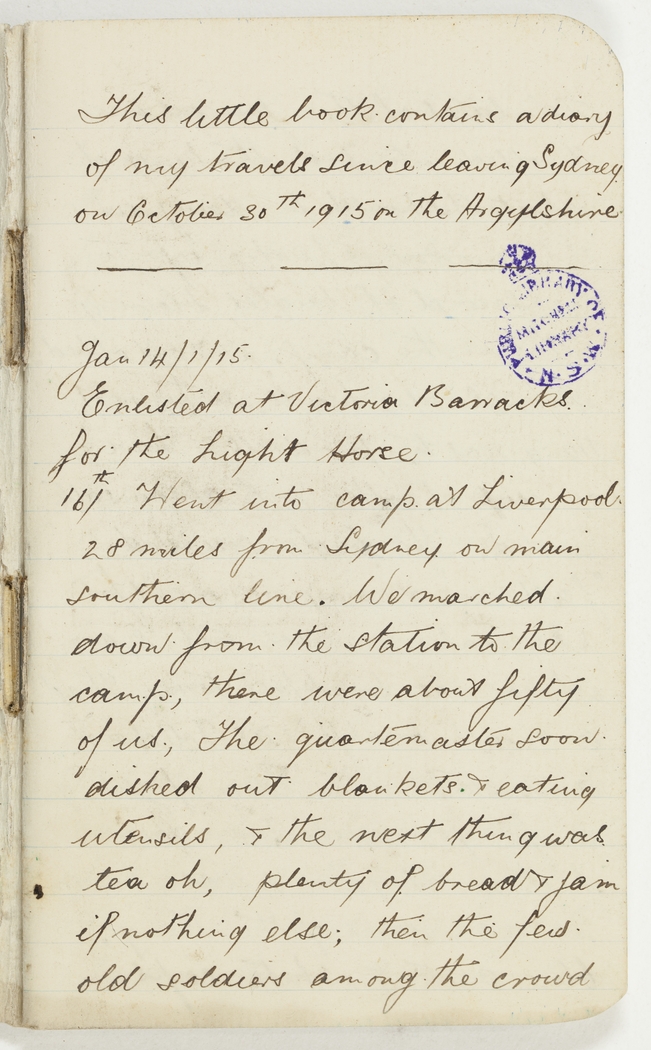 This little book contains a diary
of my travels since leaving Sydney
on October 30th 1915 on the Argylshire
PUBLIC LIBRARY OF N.S.W.
MITCHELL
LIBRARY
Jan 14/1/15.
Enlisted at Victoria Barracks.
for the Light Horse.
16/th Went into camp at Liverpool.
28 miles from Sydney on main
southern line. We marched
down from the station to the
camp, there were about fifty
of us, The quartemaster soon
dished out blankets. & eating
utensils, & the next thing was
tea oh, plenty of bread & jam
if nothing else; then the few
old soldiers among the crowd